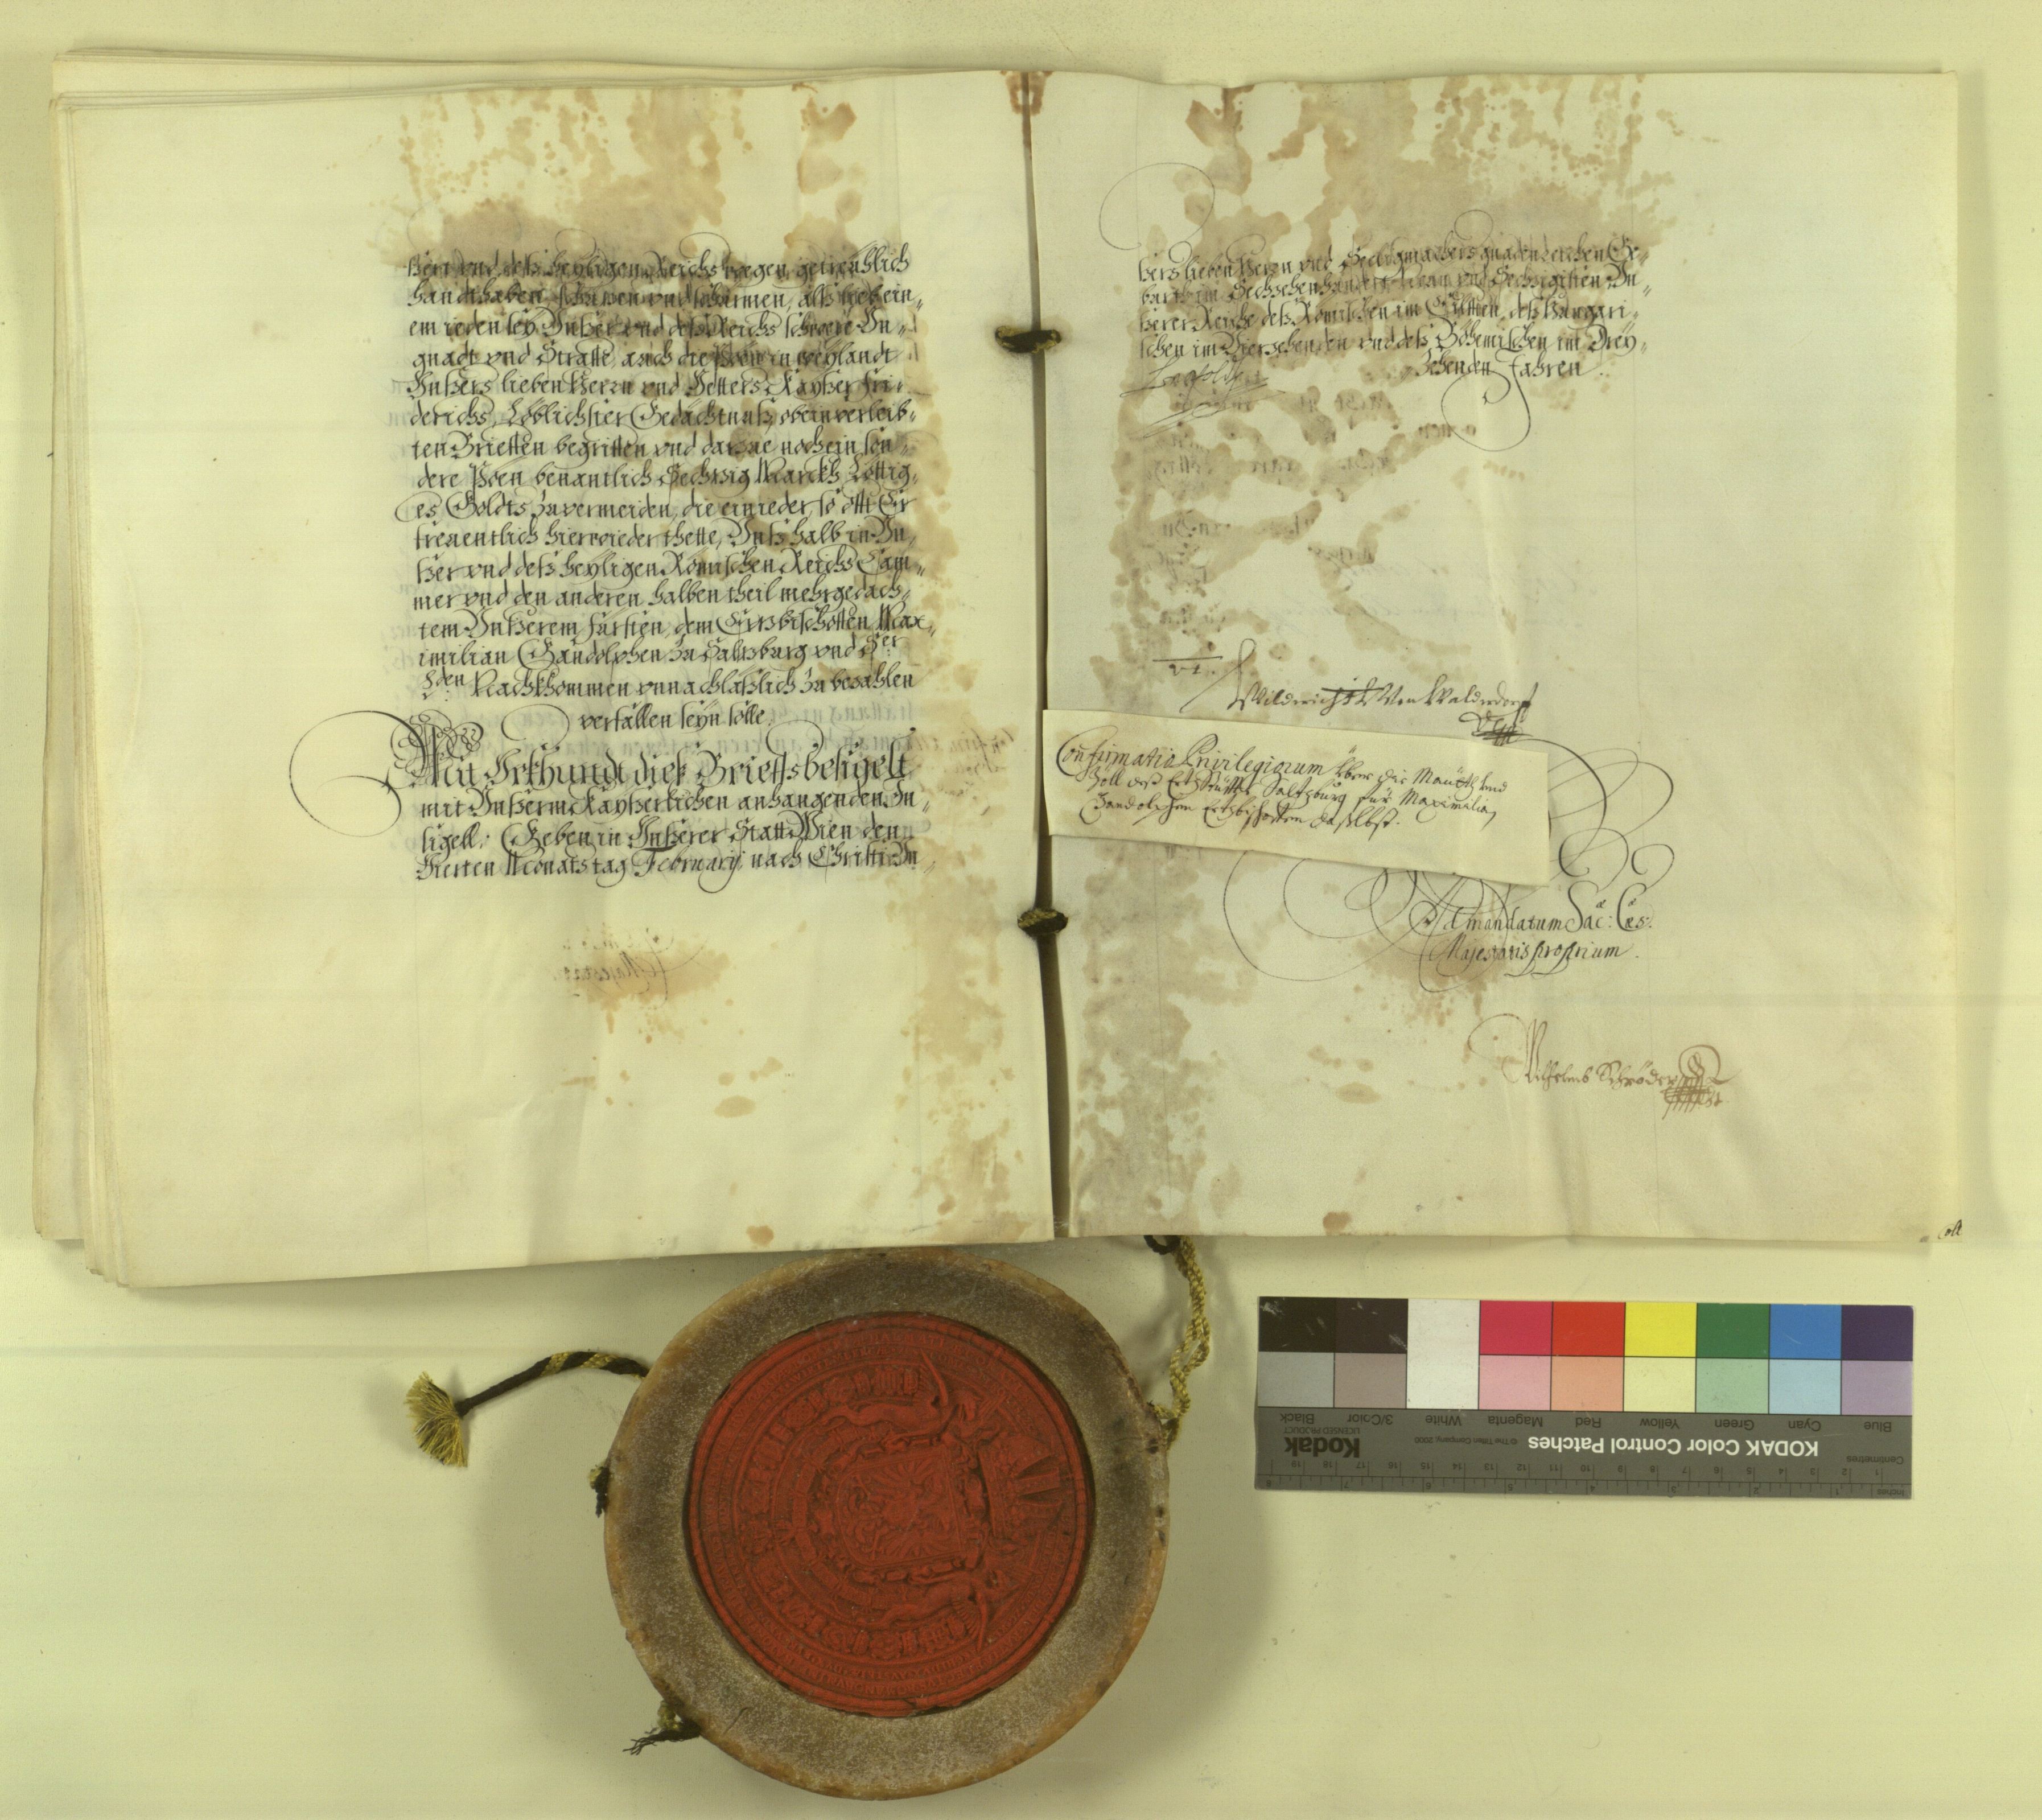 ßert vnd deß heyligen Reichs wegen, getreühlich
handthaben, schüzen vnd schirmen, alß lieb ein„
em ieden sey, Vnßer vnd deß Reichs schwere Vn„
gnadt vnd Straffe, auch die Pöen in weylandt
Vnßers lieben Herrn vnd Vetters Kayßer Fri„
derichs, Löblichster Gedächtnuß, obeinverleib„
ten Brieffen begriffen vnd darzue noch ein son„
dere Pöen benantlich Sechzig Marckh Löttig„
es Goldts zuvermeiden, die ein ieder, so offt Er
freuentlich hierwieder thette, Vnß halb in Vn„
ßer vnd deß heyligen Römischen Reichs Cam„
mer vnd den anderen halben theil mehrgedach„
tem Vnßerem Fürsten, dem Ertzbischoffen Max„
imilian Gandolphen zu Saltzburg vnd Ser
Lden Nachkhommen vnnachläßlich zu bezahlen
verfallen seyn solle.
Mit Vrkhund dieß Brieffs besigelt
mit Vnßerm Kayßerlichen anhangenden In„
sigell. Geben in Vnßerer Statt Wien den
Vierten Monats tag Februarij, nach Christi Vn„
ßers lieben Herrn vnd Seeligmachers gnadenreichen Ge„
burth im Sechzehenhundert Neun vnd Sechzigisten, Vn„
ßerer Reiche deß Römischen im Eülfften, deß Hungari„
schen im Vierzehenden vnd deß Böheimischen im Drey„
zehenden Jahren.
Leopoldt
Vt.
Wilderich Von Walderdorff
Confirmatio Privilegiorum über die Mauth Vnd
Zoll deß Ertzstüffts Saltzburg für Maximilian
Gandolphen Ertzbischoffen daselbst.
Ad mandatum Sac: Cæs:
Majestatis proprium.
Wilhelmb Schröder
Coll
KODAK Color Control Patches
Kodak
LICENSED PRODUCT
© The Tiffen Company, 2000
Blue Cyan Green Yellow Red Magenta White 3/Color Black
Centimetres
Inches